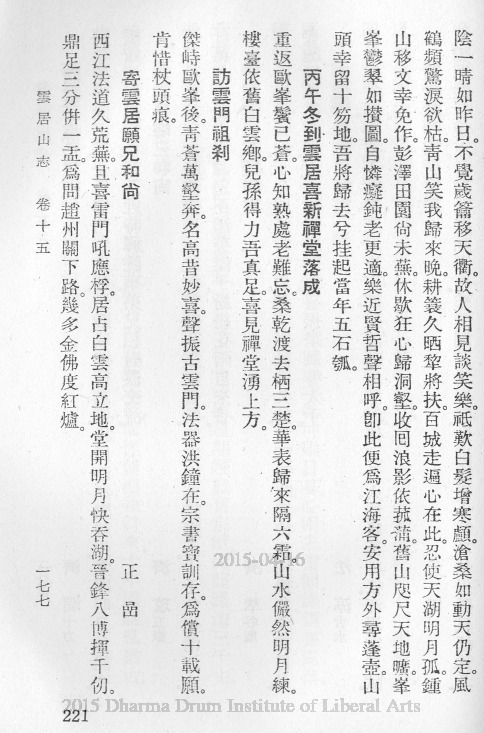 陰一晴如昨日。不覺歲籥移天衢。故人相見談笑樂。祇歎白髮增寒顱。滄桑如動天仍定。風
鶴頻驚淚欲枯。青山笑我歸來晚。耕蓑久晒犂將扶。百城走遍心在此。忍使天湖明月孤。鍾
山移文幸免作。彭澤田園尙未蕪。休歇狂心歸洞壑。收回浪影依菰蒲。舊山咫尺天地曠。峯
峯鬱翠如攢圖。自憐癡鈍老更適。樂近賢哲聲相呼。卽此便爲江海客。安用方外尋蓬壺。山
頭幸留十笏地。吾將歸去兮挂起當年五石瓠。
丙午冬到雲居喜新禪堂落成
重返歐峯鬢已蒼。心知熟處老難忘。桑乾渡去栖三楚。華表歸來隔六霜。山水儼然明月練。
樓臺依舊白雲鄉。兒孫得力吾真足。喜見禪堂湧上方。
訪雲門祖刹
傑峙歐峯後。靑蒼萬壑奔。名高昔妙喜。聲振古雲門。法器洪鐘在。宗書寶訓存。爲償十載願。
肯惜杖頭痕。
寄雲居願兄和尙 正嵒
西江法道久荒蕪。且喜雷門吼應桴。居占白雲高立地。堂開明月快吞湖。晉鋒八博揮千仞。
鼎足三分倂一盂。爲問趙州關下路。幾多金佛度紅爐。
雲居山志 卷十五 一七七
221
2015-04-16
2015 Dharma Drum Institute of Liberal Arts